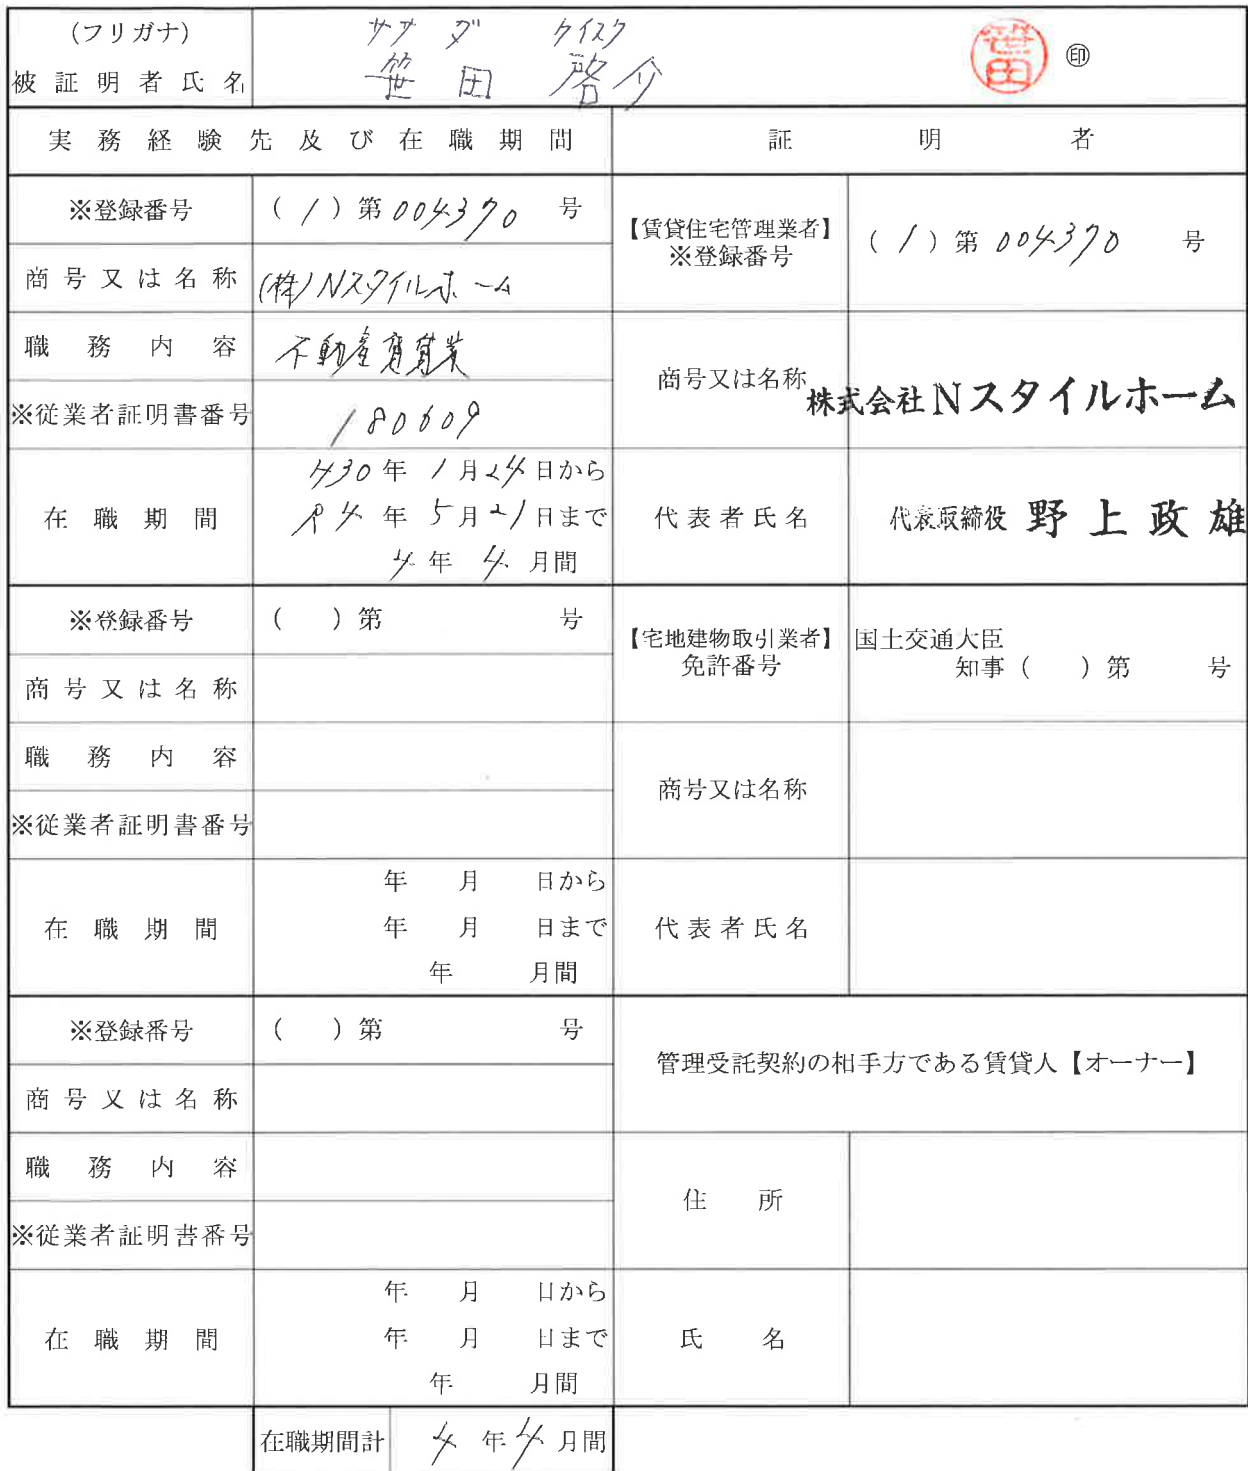 (フリガナ) ササダ ケイスケ
被証明者氏名 笹田 啓介 笹田 ㊞
実務経験先及び在職期間 証明者
※登録番号 (1)第004370号
【賃貸住宅管理業者】
※登録番号 (1)第004370号
商号又は名称 (株)Nスタイルホーム
職務内容 不動産売買業
商号又は名称 株式会社Nスタイルホーム
※従業者証明書番号 180609
在職期間
H30年1月24日から
R4年5月21日まで
4年4月間
代表者氏名 代表取締役 野上政雄
※登録番号 ( )第 号
【宅地建物取引業者】
免許番号
国土交通大臣
知事( )第 号
商号又は名称
職務内容
商号又は名称
※従業者証明書番号
在職期間
年 月 日から
年 月 日まで
年 月間
代表者氏名
※登録番号 ( )第 号
管理受託契約の相手方である賃貸人【オーナー】
商号又は名称
職務内容
住所
※従業者証明書番号
在職期間
年 月 日から
年 月 日まで
年 月間
氏名
在職期間計 4年4月間